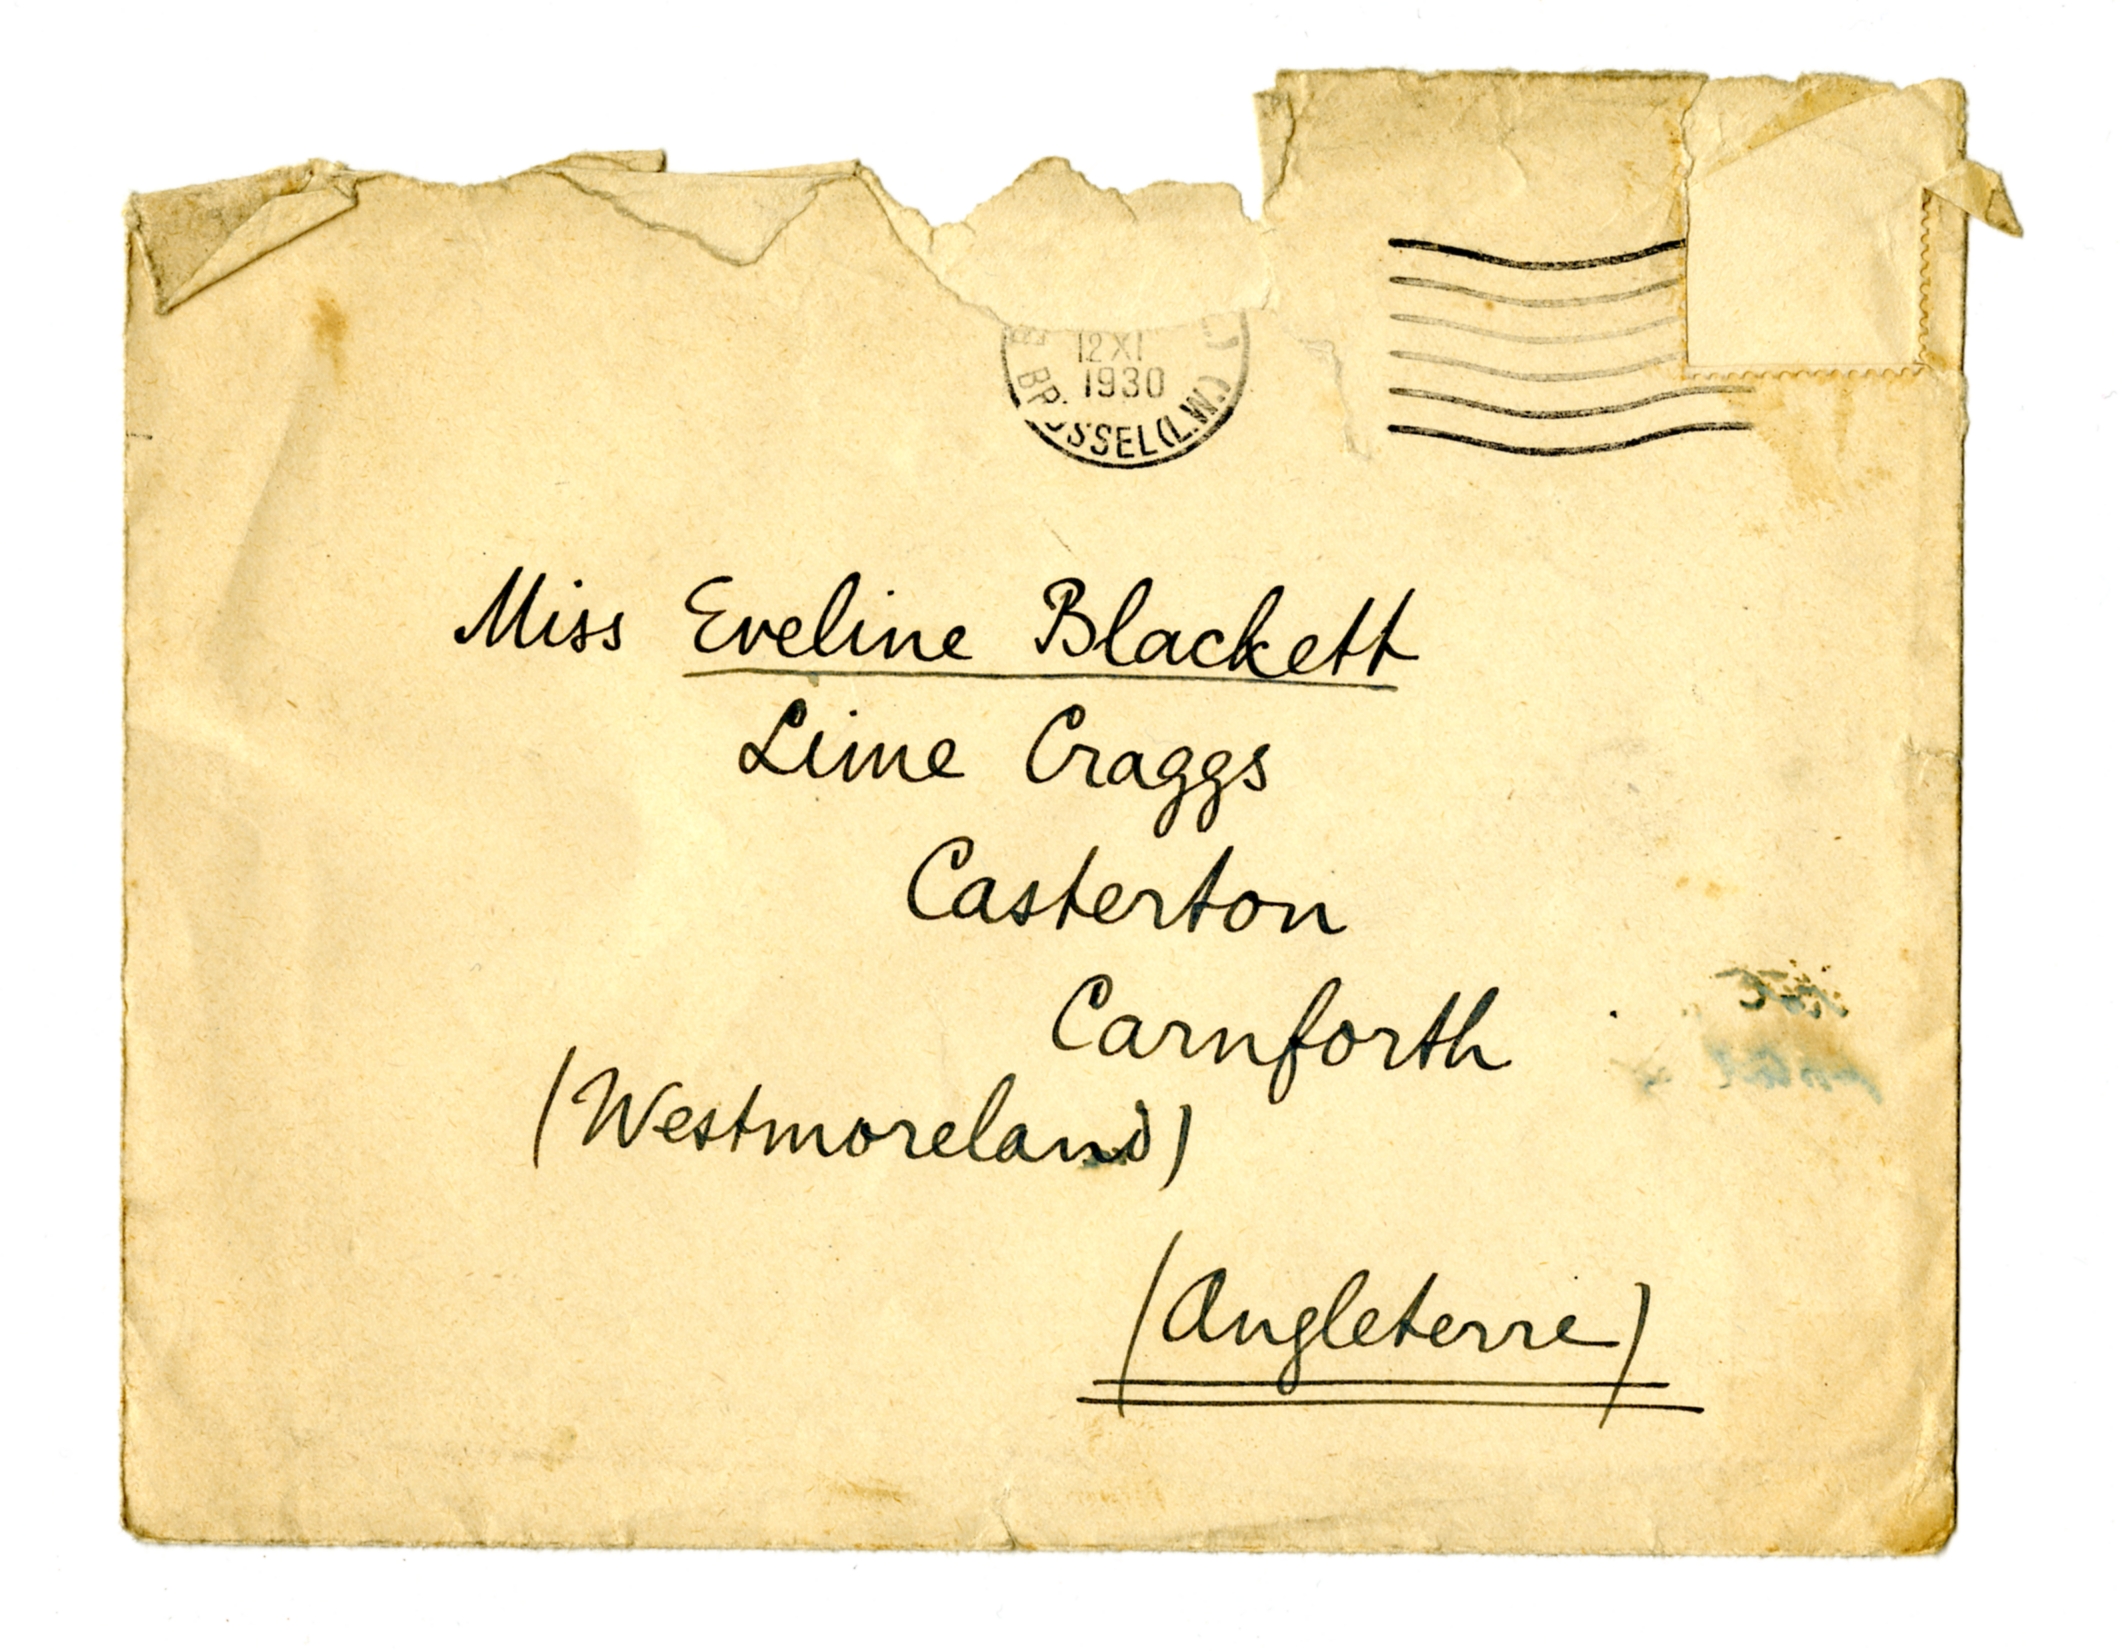 12 XI
1930
BRUSSEL (L.W.)
Miss Eveline Blackett
Lime Craggs
Casterton
Carnforth
(Westmoreland)
(Angleterre)